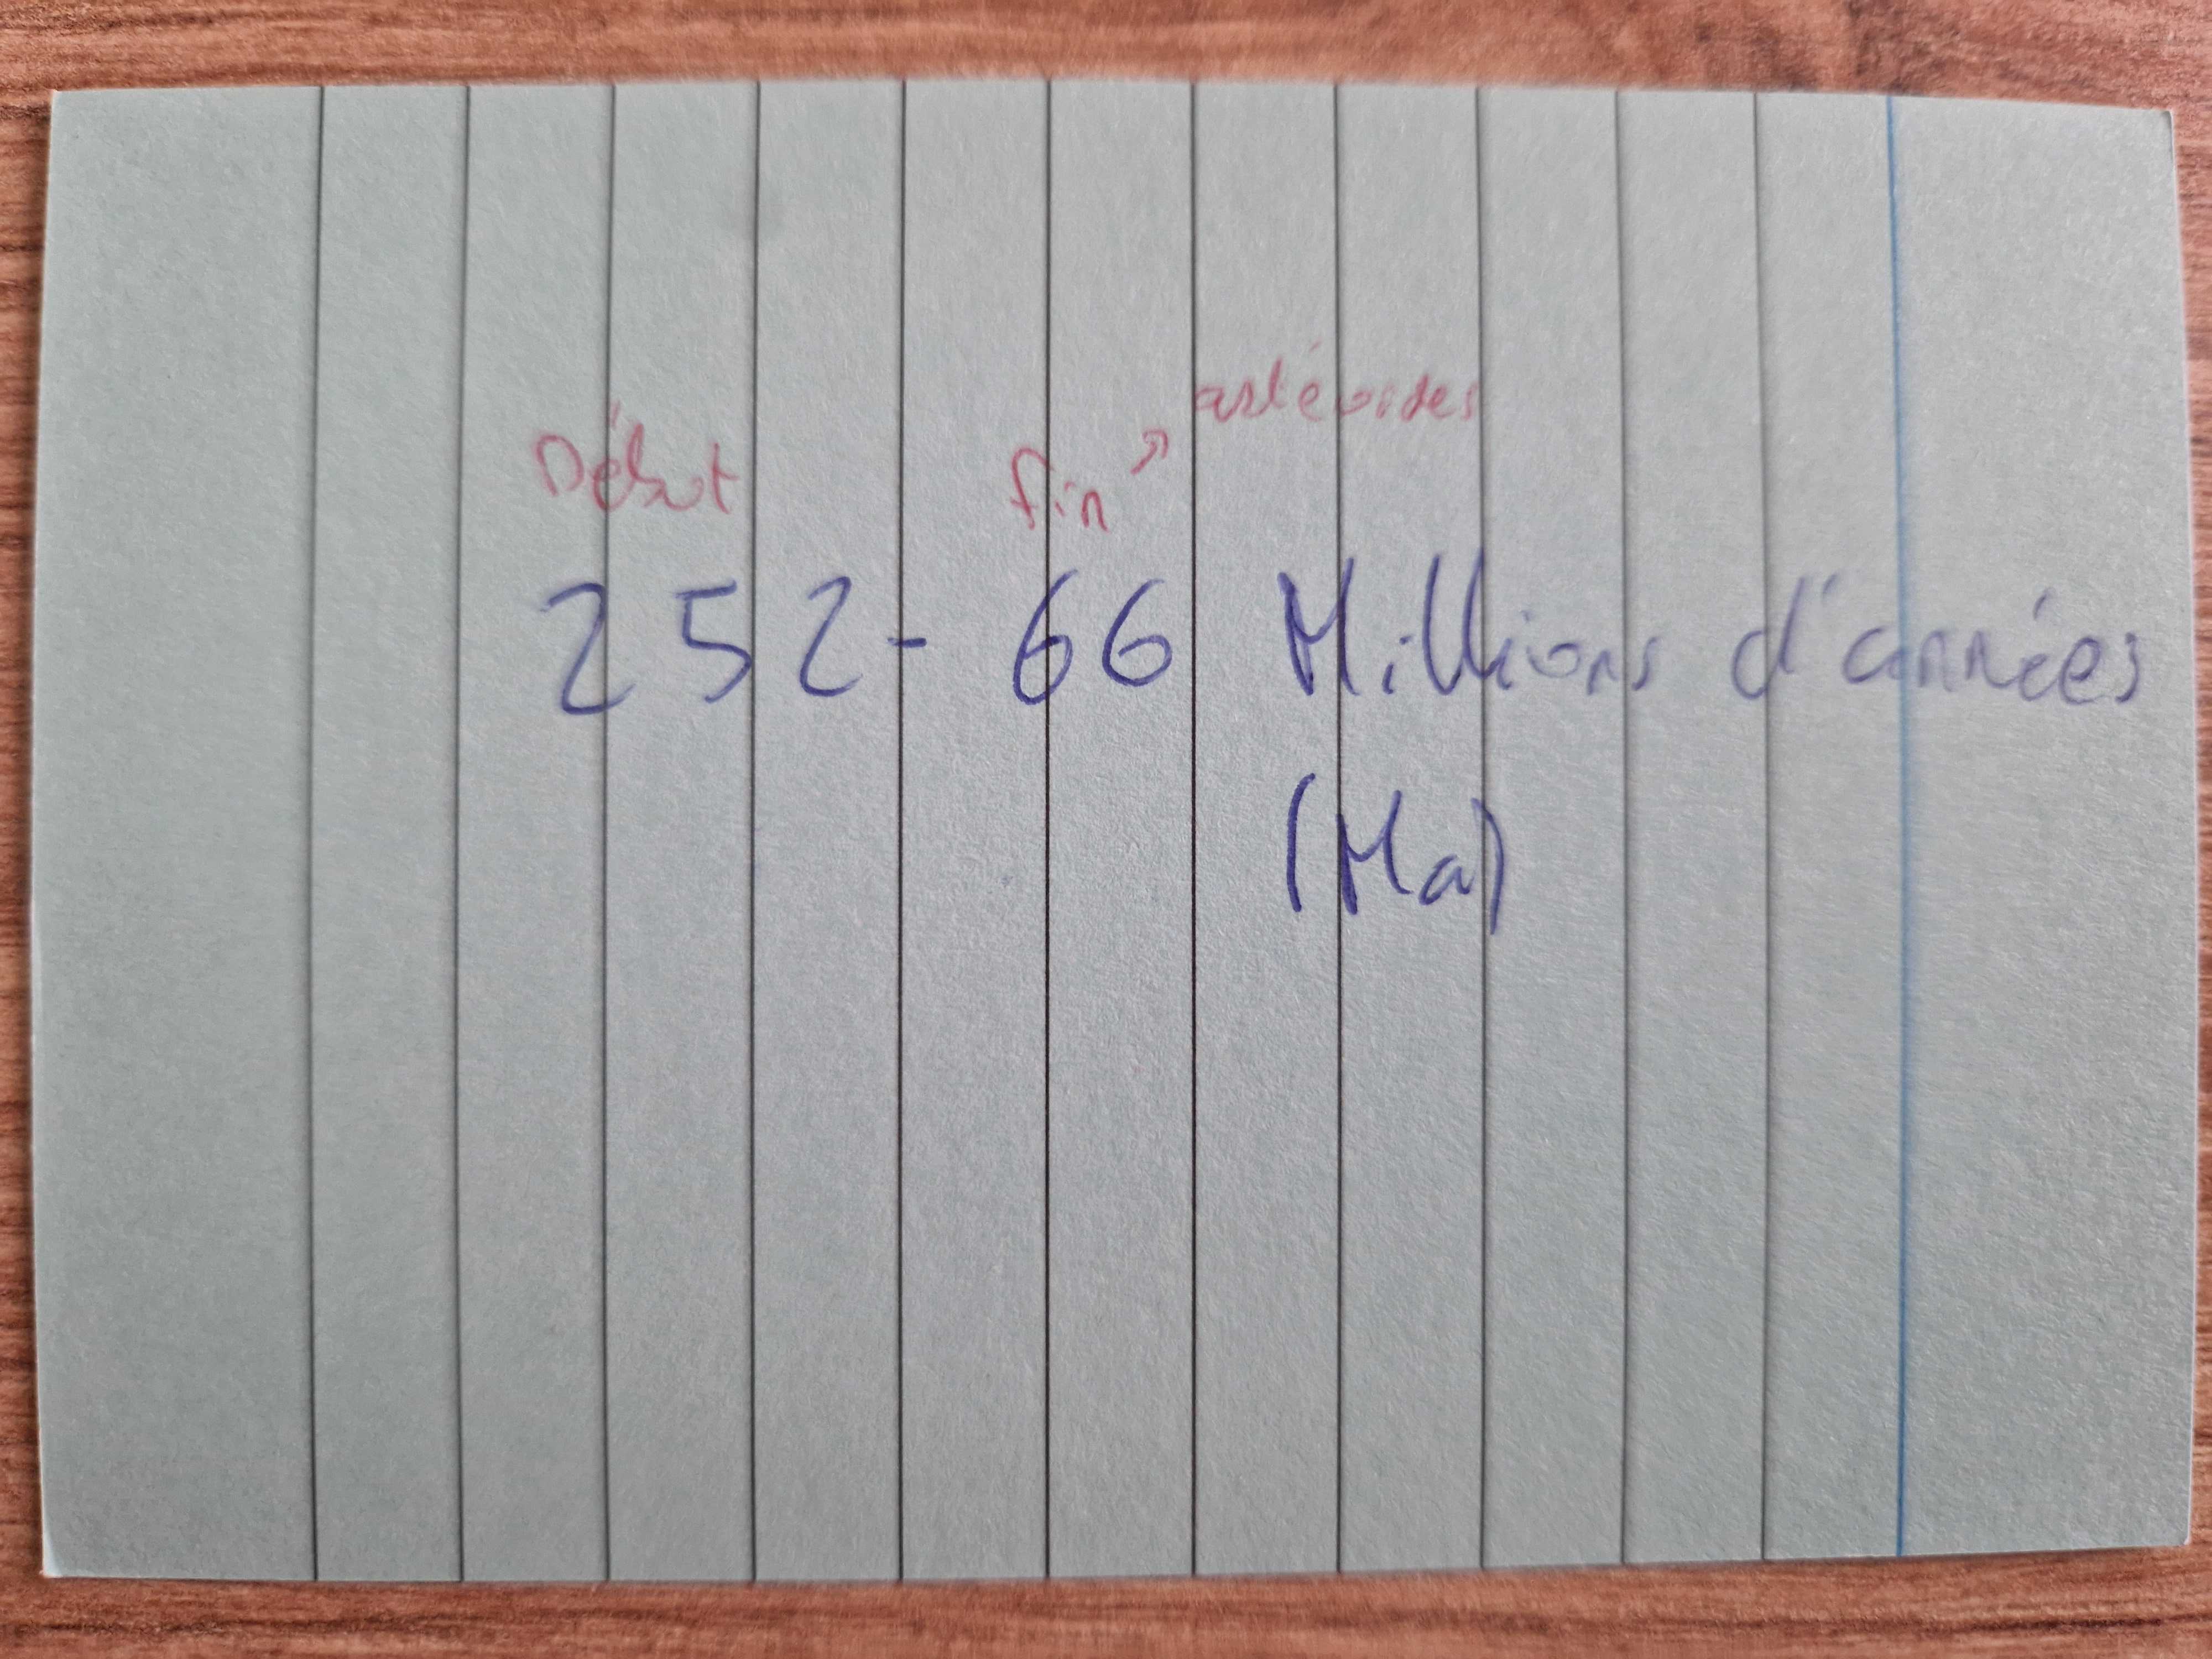 Début fin ↗ astéroides
252 - 66 Millions d'années
(Ma)